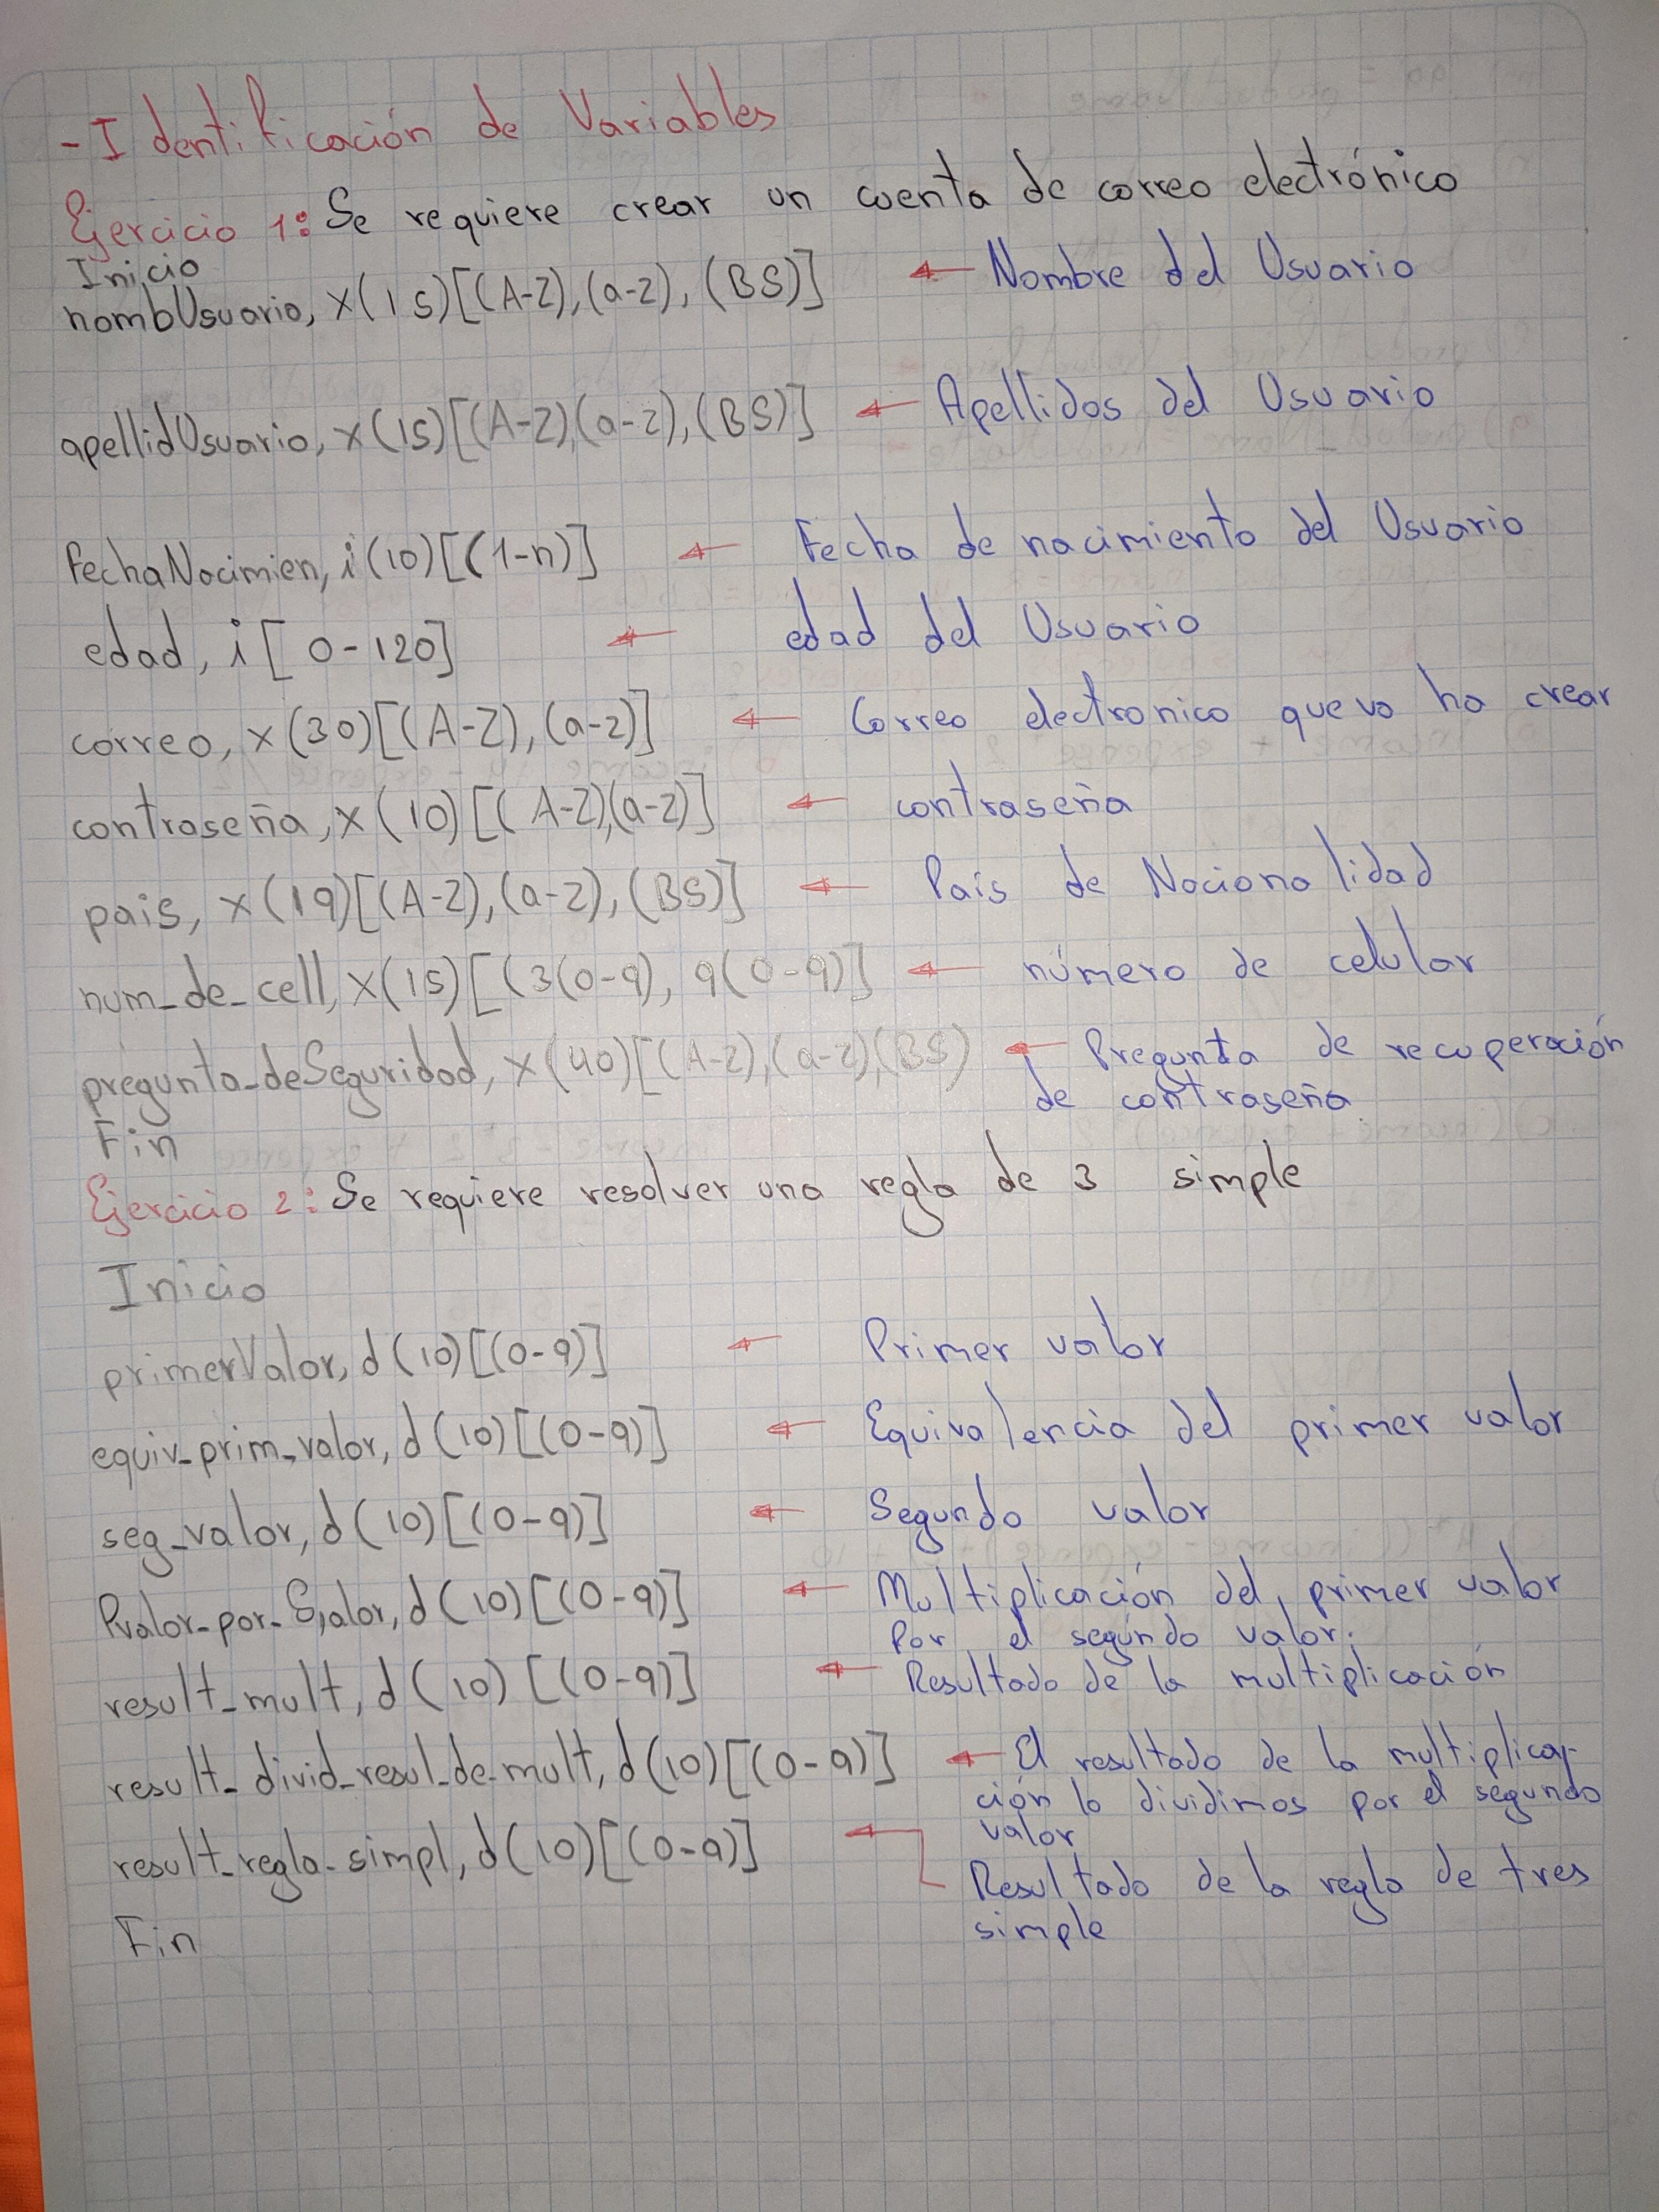 - Identificación de Variables
Ejercicio 1: Se requiere crear un cuenta de correo electrónico
Inicio
nombUsuario, x(15)[(A-Z),(a-z),(BS)] ← Nombre del Usuario
apellidUsuario, x(15)[(A-Z),(a-z),(BS)] ← Apellidos del Usuario
FechaNacimien, i(10)[(1-n)] ← Fecha de nacimiento del Usuario
edad, i[0-120] ← edad del Usuario
correo, x(30)[(A-Z),(a-z)] ← Correo electronico que va ha crear
contraseña, x(10)[(A-Z),(a-z)] ← contraseña
pais, x(19)[(A-Z),(a-z),(BS)] ← Pais de Nacionalidad
num_de_cell, x(15)[(3(0-9), 9(0-9)] ← número de celular
pregunta_deSeguridad, x(40)[(A-Z),(a-z),(BS) ← Pregunta de recuperación
de contraseña
Fin
Ejercicio 2: Se requiere resolver una regla de 3 simple
Inicio
primerValor, d(10)[(0-9)] ← Primer valor
equiv_prim_valor, d(10)[(0-9)] ← Equivalencia del primer valor
seg_valor, d(10)[(0-9)] ← Segundo valor
Pvalor_por_Svalor, d(10)[(0-9)] ← Multiplicación del primer valor
por el segundo valor.
result_mult, d(10)[(0-9)] ← Resultado de la multiplicación
result_divid_resul_de_mult, d(10)[(0-9)] ← El resultado de la multiplica-
ción lo dividimos por el segundo
valor
result_regla_simpl, d(10)[(0-9)] ← Resultado de la regla de tres
simple
Fin